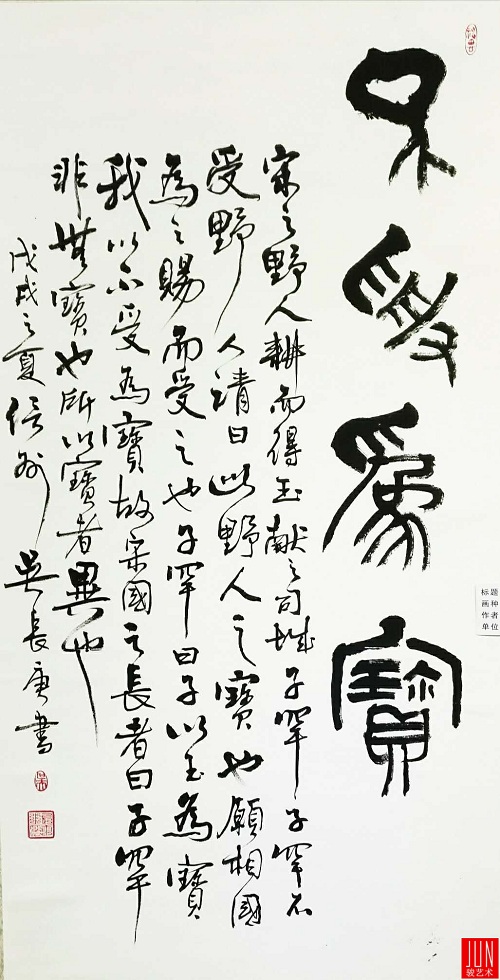 不受為寶
宋之野人耕而得玉献之司城子罕子罕不
受野人請曰此野人之寶也願相國
為之賜而受之也子罕曰子以玉為寶
我以不受為寶故宋國之長者曰子罕
非無寶也所以寶者異也
戊戌之夏信州吳長庚書
标题
画种
作者
单位
JUN
骏艺术